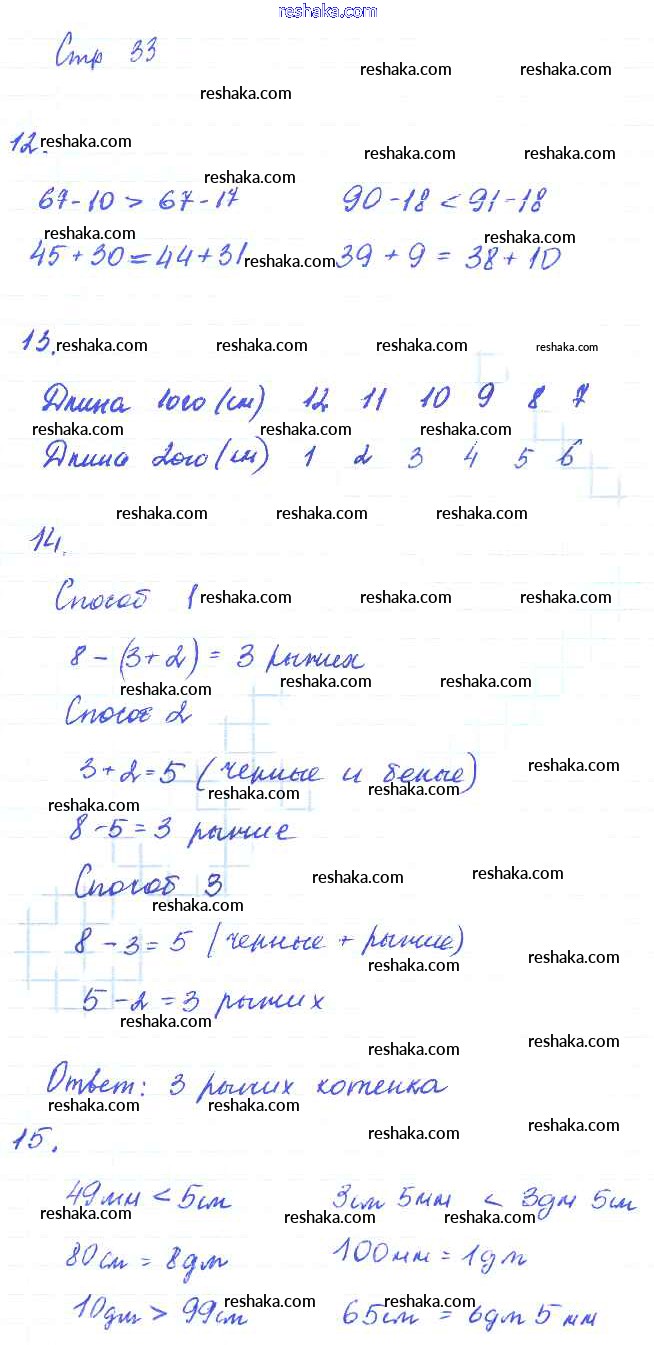 reshaka.com
Стр 33
reshaka.com reshaka.com
reshaka.com
12. reshaka.com
reshaka.com reshaka.com
reshaka.com
67-10 > 67-17 90-18 < 91-18
reshaka.com reshaka.com
45+30=44+31 reshaka.com 39+9 = 38+10
13. reshaka.com reshaka.com reshaka.com reshaka.com
Длина 1ого (см) 12 11 10 9 8 7
reshaka.com reshaka.com reshaka.com
Длина 2ого (см) 1 2 3 4 5 6
reshaka.com reshaka.com reshaka.com
14.
Способ 1 reshaka.com reshaka.com reshaka.com
8 - (3+2) = 3 рыжих
reshaka.com reshaka.com reshaka.com
Способ 2
3+2=5 (черные и белые) reshaka.com
reshaka.com reshaka.com reshaka.com
8-5=3 рыжие
Способ 3 reshaka.com reshaka.com
reshaka.com
8-3=5 (черные + рыжие)
reshaka.com reshaka.com
5-2=3 рыжих
reshaka.com reshaka.com reshaka.com
Ответ: 3 рыжих котенка
reshaka.com reshaka.com
15. reshaka.com reshaka.com
49мм < 5см 3см 5мм < 3дм 5см
reshaka.com reshaka.com reshaka.com
80см = 8дм 100мм = 1дм
10дм > 99см reshaka.com reshaka.com
65см = 6дм 5мм